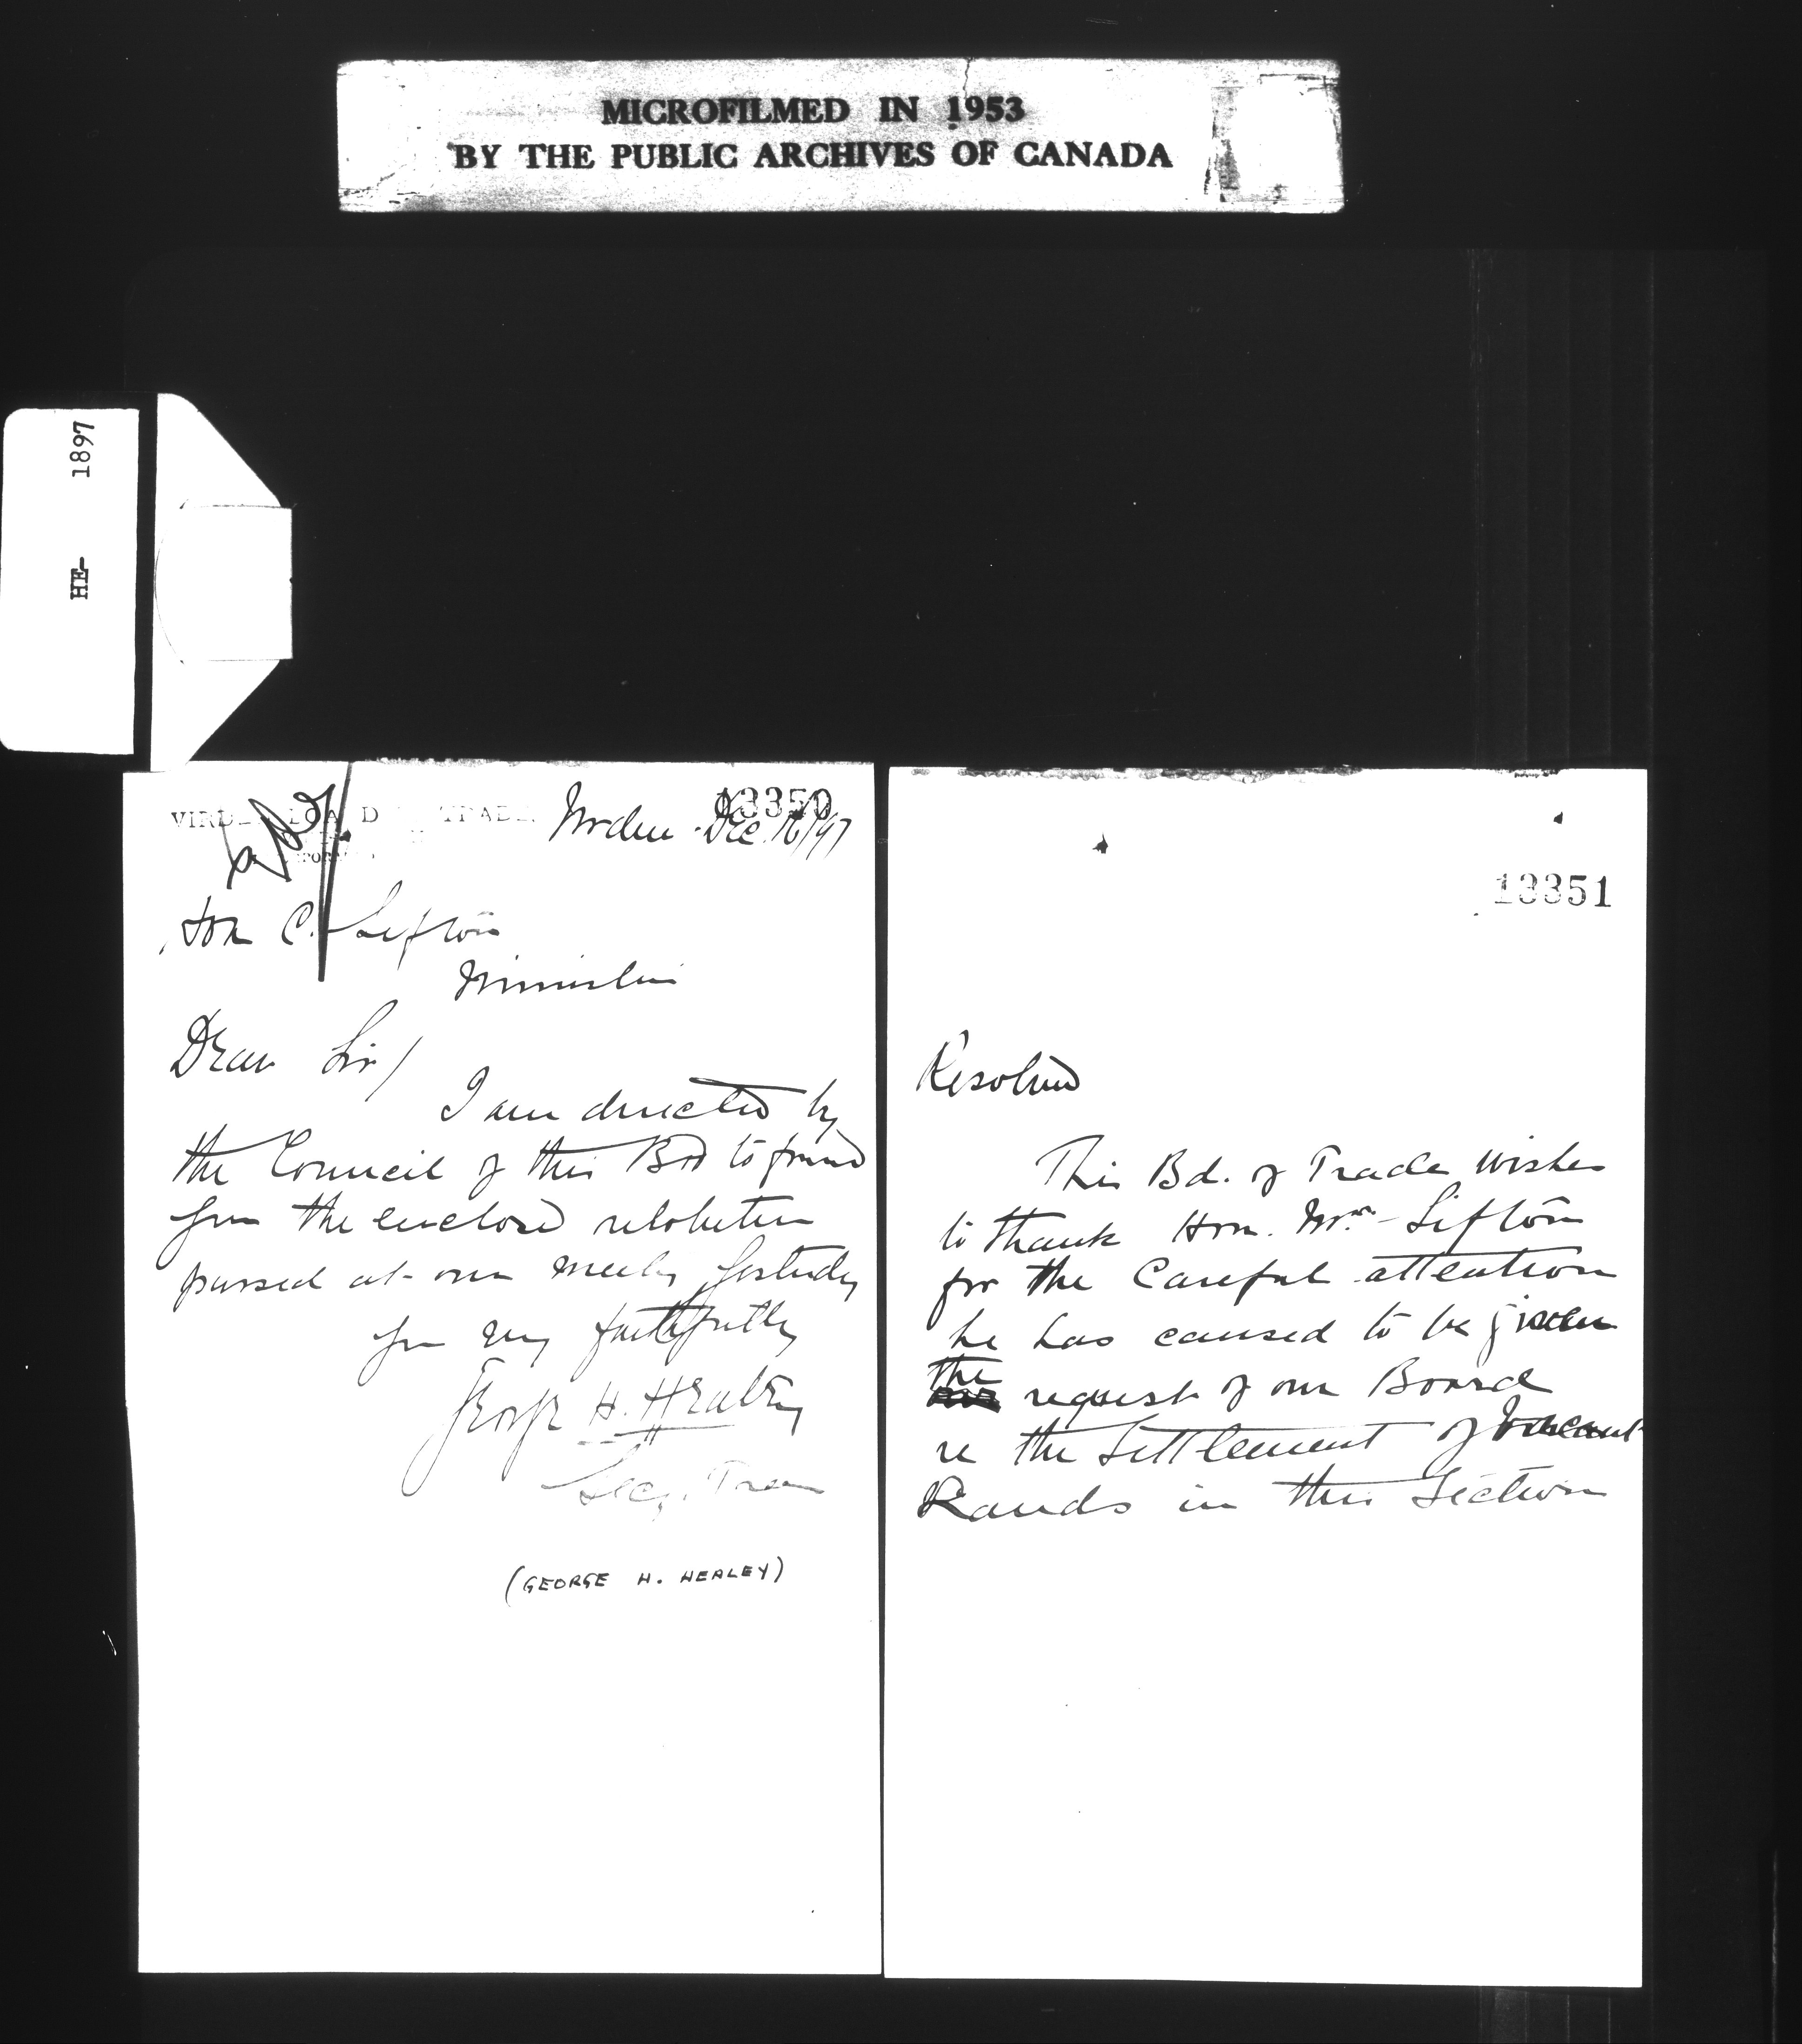 MICROFILMED IN 1953
BY THE PUBLIC ARCHIVES OF CANADA
HE- 1897
13350
VIRDEN BOARD OF TRADE
Virden Dec 16/97
Hon C. Sifton
Minister
Dear Sir/
I am directed by
the Council of this Bd to forward
you the enclosed resolution
passed at our meeting yesterday
Yrs very faithfully
George H. Healey
Secy. Treas
(GEORGE H. HEALEY)
13351
Resolved
This Bd. of Trade wishes
to thank Hon. Mr. Sifton
for the Careful attention
he has caused to be given
the request of our Board
re the Settlement of Vacant
Lands in this Section